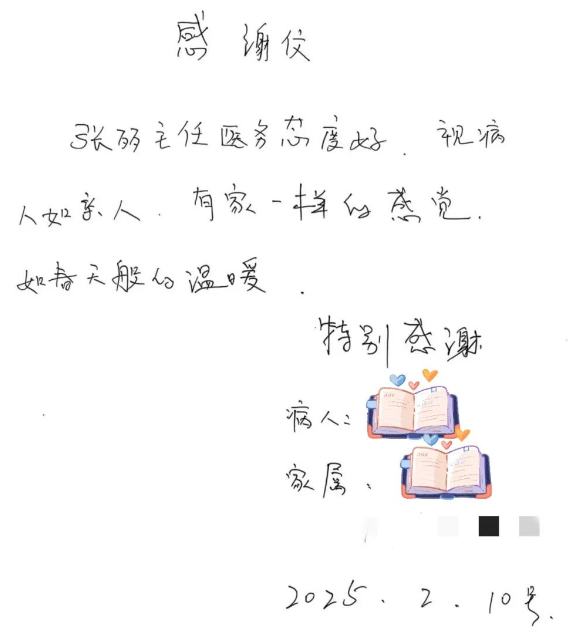 感谢信
张丽主任医务态度好．视病
人如亲人．有家一样的感觉．
如春天般的温暖．
特别感谢
病人：
家属：
2025．2．10号．